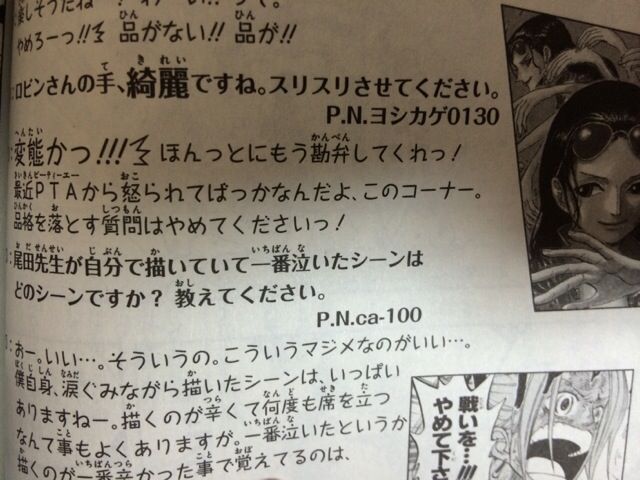 やめろーっ!! 品がない!! 品が!!
ロビンさんの手、綺麗ですね。スリスリさせてください。
P.N.ヨシカゲ0130
変態かっ!!! ほんっとにもう勘弁してくれっ!
最近PTAから怒られてばっかなんだよ、このコーナー。
品格を落とす質問はやめてくださいっ!
:尾田先生が自分で描いていて一番泣いたシーンは
どのシーンですか? 教えてください。
P.N.ca-100
:おー。いい…。そういうの。こういうマジメなのがいい…。
僕自身、涙ぐみながら描いたシーンは、いっぱい
ありますねー。描くのが辛くて何度も席を立つ
なんて事もよくありますが。一番泣いたというか
描くのが一番辛かった事で覚えてるのは、
戦いを…!!!
やめて下さ